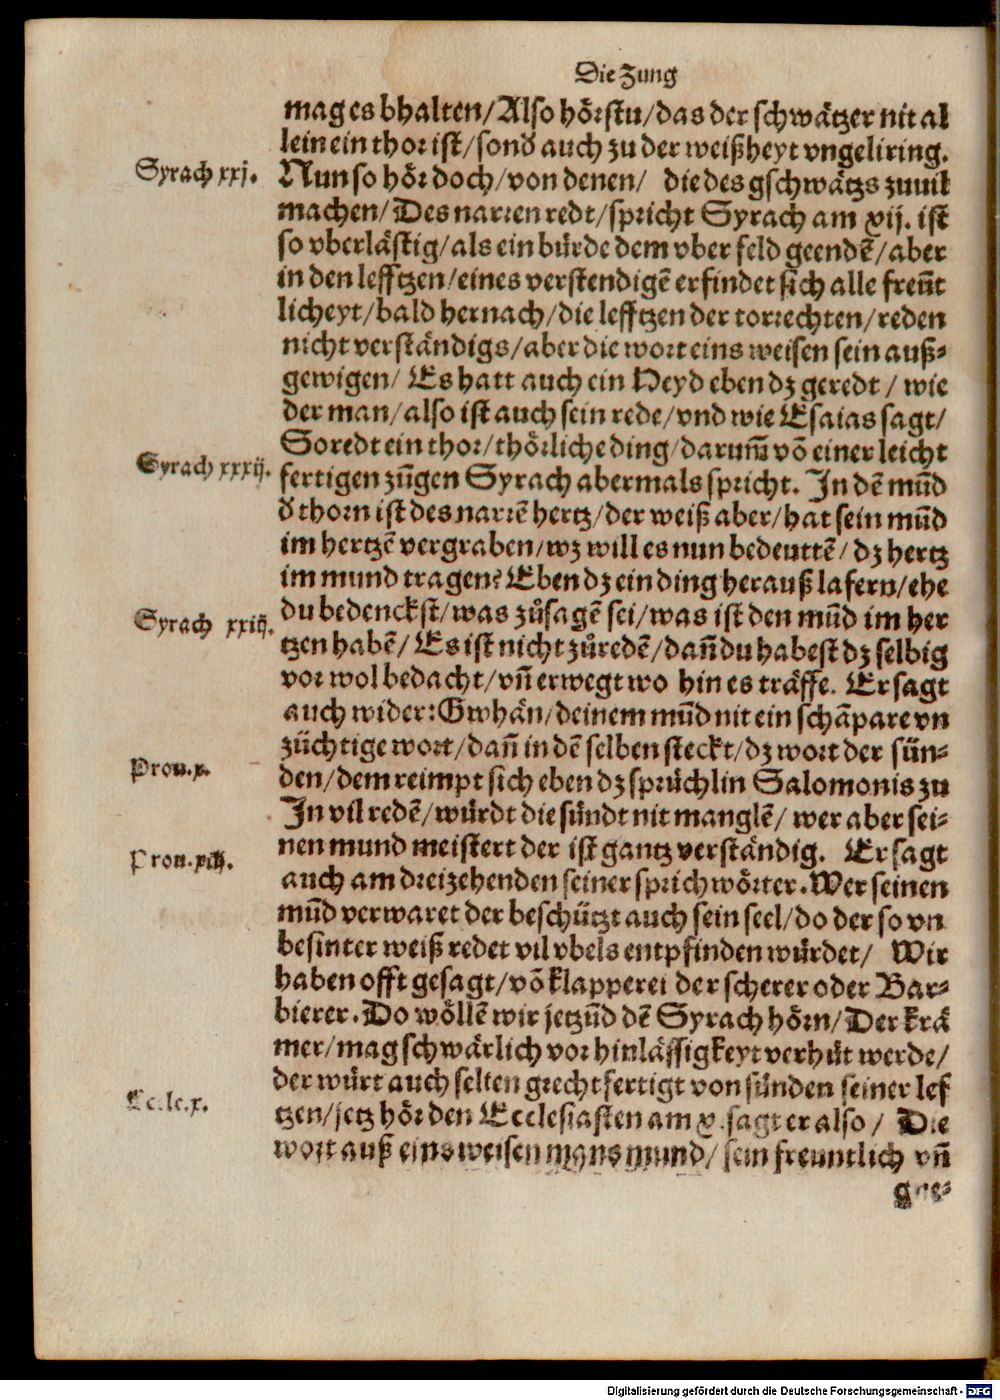 Die Zung
mag es bhalten/Also hoͤrstu/das der schwaͤtzer nit al
lein ein thor ist/sonđ auch zu der weißheyt vngeliring.
Syrach xxj. Nun so hoͤr doch/von denen/ die des gschwaͤtzs zuuil
machen/Des narren redt/spricht Syrach am xij. ist
so vberlaͤstig/als ein buͤrde dem vber feld geendē/aber
in den lefftzen/eines verstendigē erfindet sich alle freūt
licheyt/bald hernach/die lefftzen der torrechten/reden
nicht verstaͤndigs/aber die wort eins weisen sein auß⸗
gewigen/ Es hatt auch ein Heyd eben dz geredt/ wie
der man/also ist auch sein rede/vnd wie Esaias sagt/
So redt ein thor/thoͤrliche ding/darum̄ vō einer leicht
Syrach xxxij. fertigen zūgen Syrach abermals spricht. In dē mūd
đ thorn ist des narrē hertz/der weiß aber/hat sein mūd
im hertzē vergraben/wz will es nun bedeuttē/ dz hertz
im mund tragen? Eben dz ein ding herauß lafern/ehe
Syrach xxiij. du bedenckst/was zuͦsagē sei/was ist den mūd im her
tzen habē/ Es ist nicht zuͦredē/dan̄ du habest dz selbig
vor wol bedacht/vn̄ erwegt wo hin es traͤffe. Er sagt
auch wider: Gwhaͤn/deinem mūd nit ein schāpare vn
zuͤchtige wort/dan̄ in dē selben steckt/dz wort der suͤn⸗
Prou.x. den/dem reimpt sich eben dz spruͤchlin Salomonis zu
In vil redē/wuͤrdt die suͤndt nit manglē/ wer aber sei⸗
Prou.xiij. nen mund meistert der ist gantz verstaͤndig. Er sagt
auch am dreizehenden seiner sprichwoͤrter. Wer seinen
mūd verwaret der beschuͤtzt auch sein seel/do der so vn
besinter weiß redet vil vbels entpfinden wuͤrdet/ Wir
haben offt gesagt/vō klapperei der scherer oder Bar⸗
bierer. Do woͤllē wir jetzūd dē Syrach hoͤrn/Der kraͤ
mer/mag schwaͤrlich vor hinlaͤssigkeyt verhuͤt werde/
der wuͤrt auch selten grechtfertigt von suͤnden seiner lef
Eccle.x. tzen/jetz hoͤr den Ecclesiasten am x. sagt er also/ Die
wort auß eins weisen mans mund/ sein freuntlich vn̄